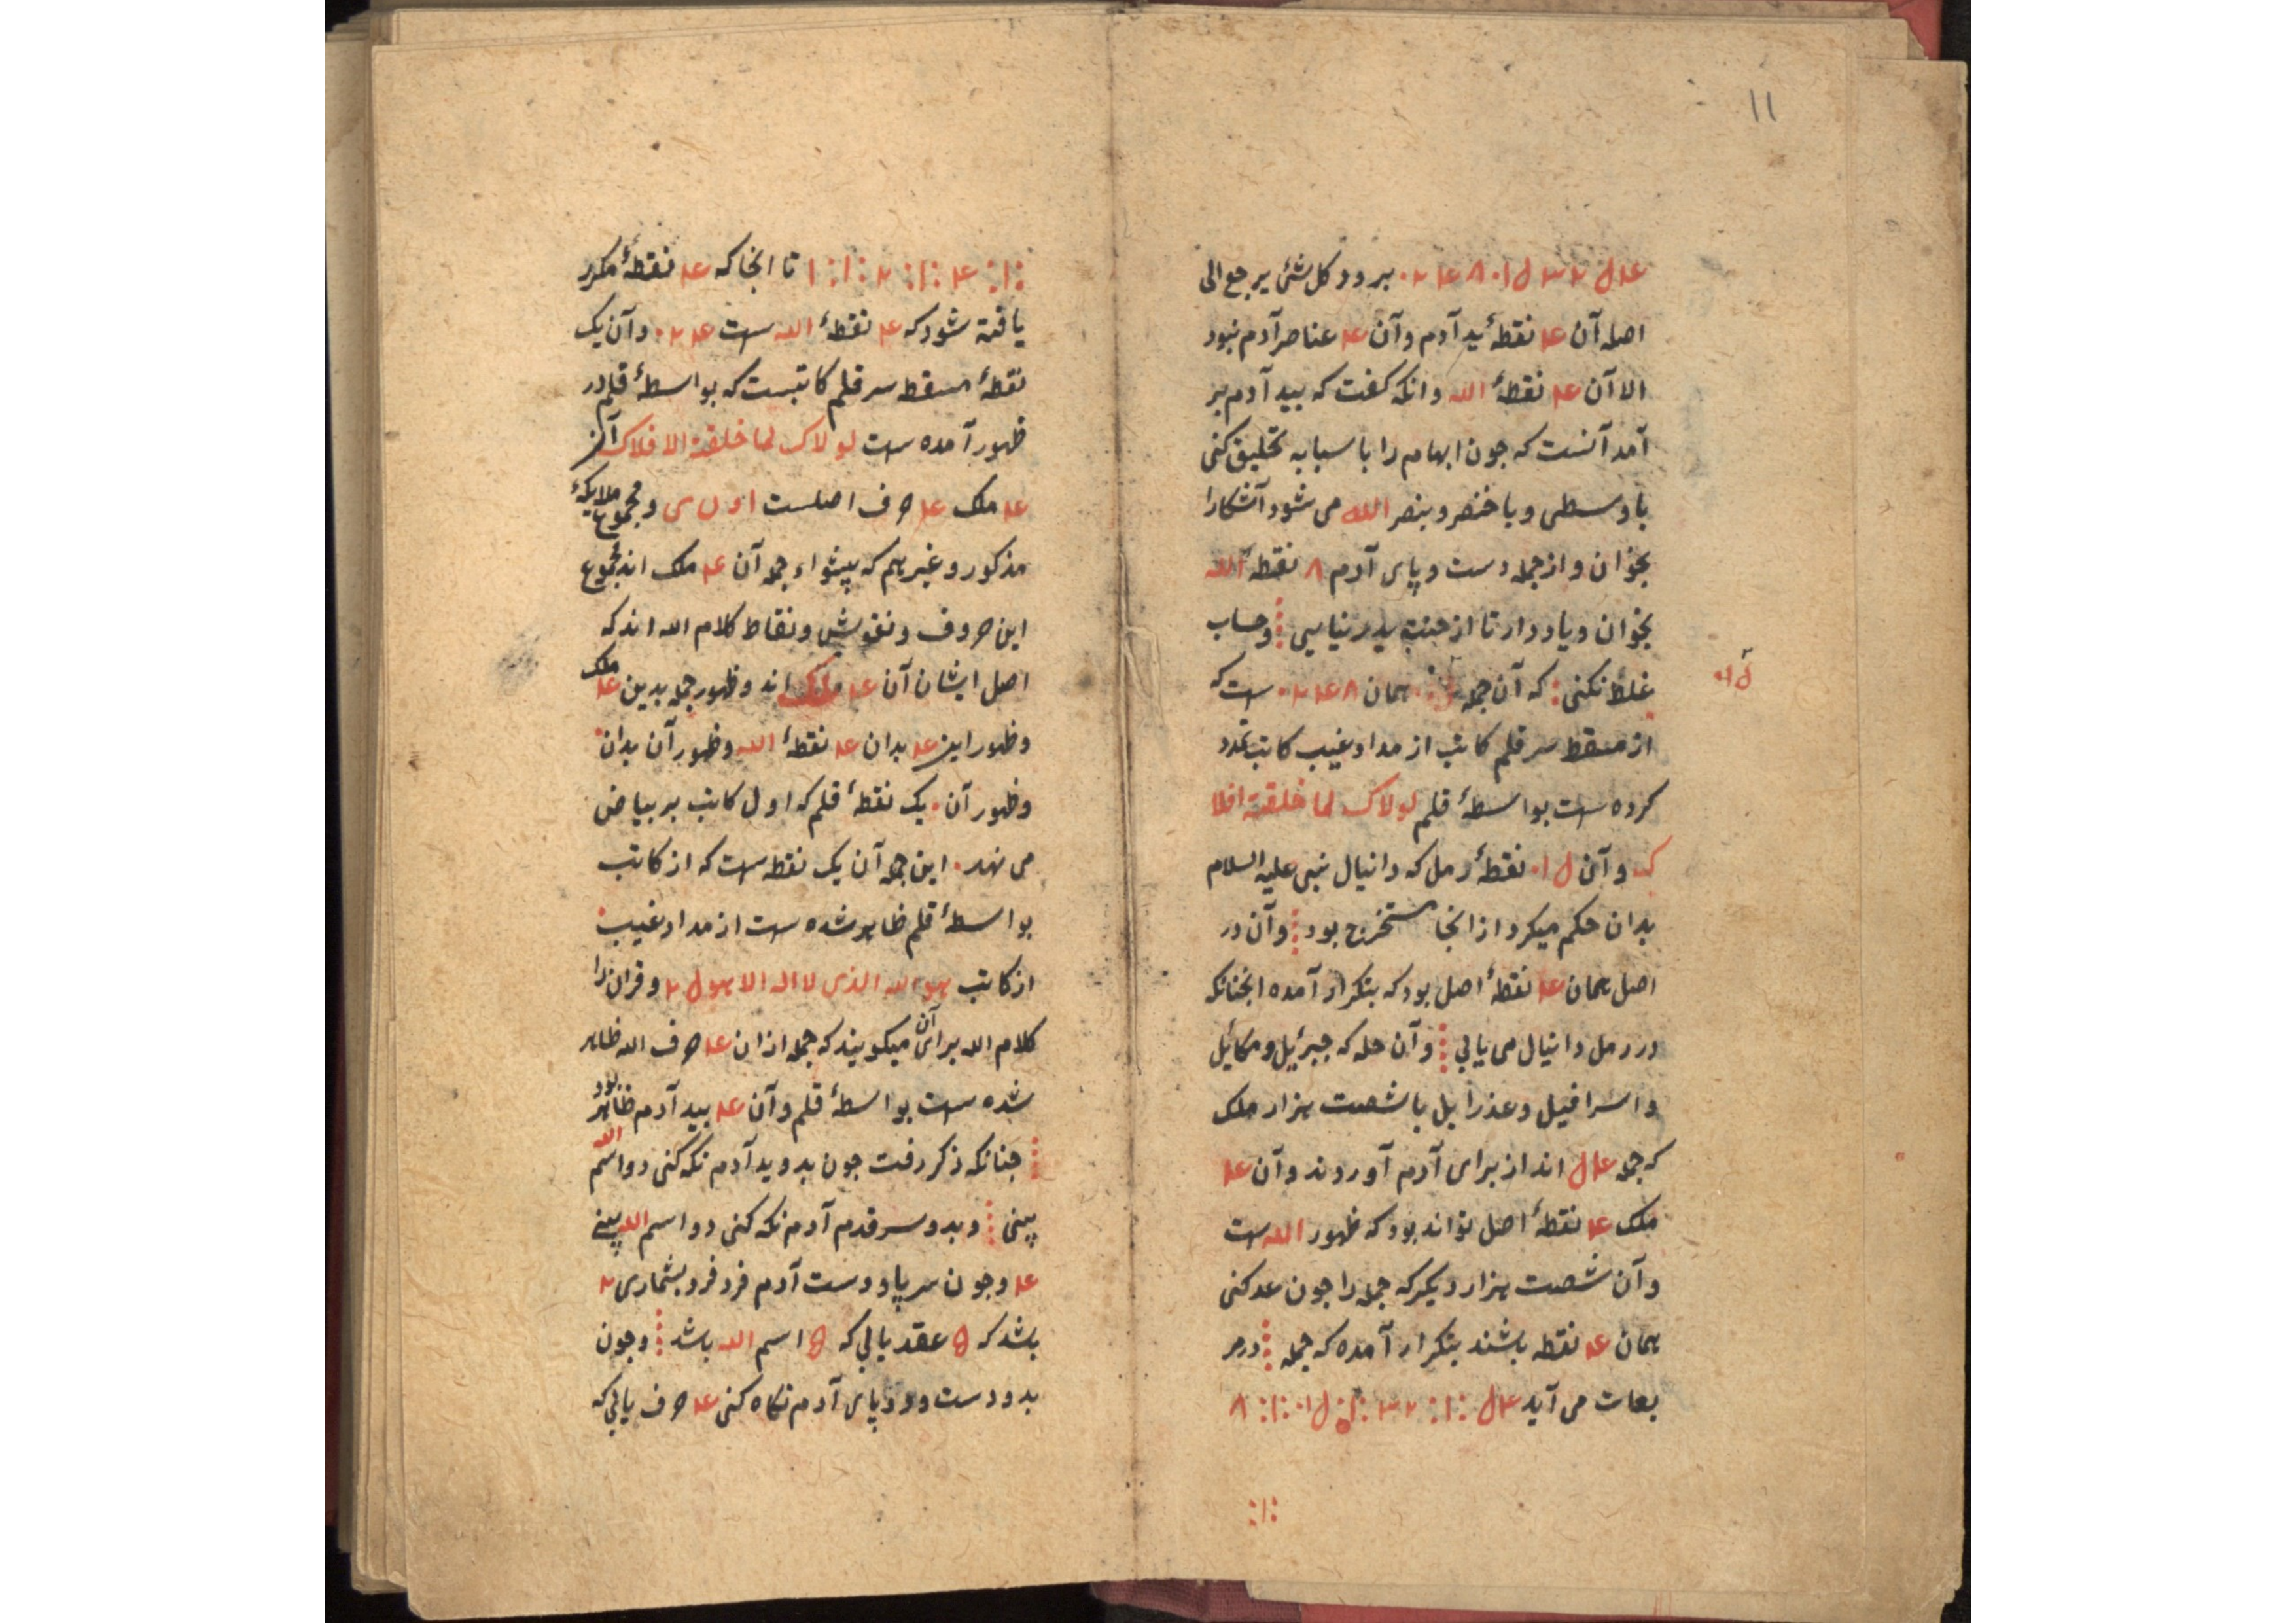 ۱۱
برود کل شئ یرجع الی
اصله آن عد نقطهٔ ید آدم و آن عد عناصر آدم نبود
الا آن عد نقطهٔ الله و انکه کفت که بید آدم بر
آمد آنست که جون ابهام را با سبابه تحلیق کنی
با وسطی و با خنصر و بنصر الله می شود آشکارا
بخوان و از جمله دست و پای آدم ۸ نقطه الله
بخوان و یاد دار تا از جنت بدر نیایی و حساب
غلط نکنی که آن جمله همان ست که
از مسقط سر قلم کاتب از مداد غیب کاتب
کرده ست بواسطهٔ قلم لولاک لما خلقت افلا
ک و آن نقطهٔ رمل که دانیال نبی علیه السلام
بدان حکم میکرد از انجا مستخرج بود و آن در
اصل همان عد نقطهٔ اصل بود که بتکرار آمده انجنانکه
در رمل دانیال می یابی و آن حله که جبرئیل و مکائیل
و اسرافیل و عذرایل با شصت هزار ملک
که جمله اند از برای آدم آوردند و آن عد
ملک عد نقطهٔ اصل تواند بود که ظهور الله ست
و آن شصت هزار دیکر که جمله را جون عد کنی
همان عد نقطه باشند بتکرار آمده که جمله در مر
بعات می آید
تا انجا که عد نقطهٔ مکرر
یافته شود که عد نقطهٔ الله ست و آن یک
نقطهٔ مسقط سر قلم کاتبست که بواسطهٔ قلم در
ظهور آمده ست لولاک لما خلقت الافلاک آن
عد ملک عد حرف اصلست و مجموع ملایکهٔ
مذکور و غیر هم که پیشواء جمله آن عد ملک اند مجموع
این حروف و نقوش و نقاط کلام الله اند که
اصل ایشان آن عد ملک اند و ظهور جمله بدین عد ملک
و ظهور این عد بدان عد نقطهٔ الله و ظهور آن بدان
و ظهور آن یک نقطهٔ قلم که اول کاتب بر بیاض
می نهد این جمله آن یک نقطه ست که از کاتب
بواسطهٔ قلم ظاهر شده ست از مداد غیب
از کاتب هو الله الذی لا اله الا هو و قران را
کلام الله برای آن میکویند که جمله از ان عد حرف الله ظاهر
شده ست بواسطهٔ قلم و آن عد بید آدم ظاهر بود
جنانکه ذکر رفت جون بدو ید آدم نکه کنی دو اسم الله
بینی و بدو سر قدم آدم نکه کنی دو اسم الله بینی
عد و جون سر پا و دست آدم فرد فرد بشماری
باشد که عقد یابی که اسم الله باشد و جون
بدو دست و دو پای آدم نکاه کنی عد حرف یابی که